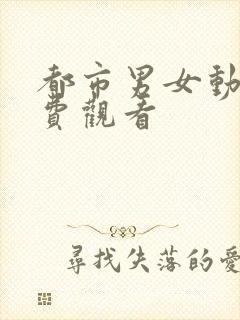 都市男女動
費觀看
尋找失落的愛